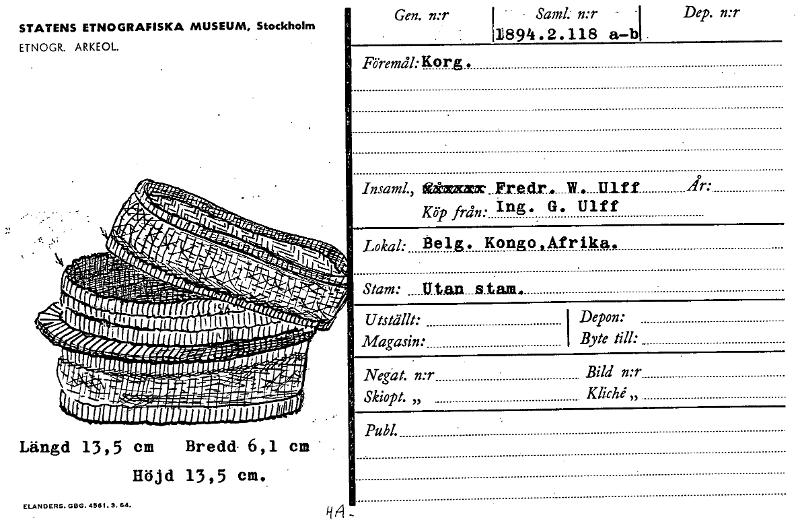 STATENS ETNOGRAFISKA MUSEUM, Stockholm
ETNOGR. ARKEOL.
Längd 13,5 cm Bredd 6,1 cm
Höjd 13,5 cm.
ELANDERS. GBG. 4561. 3. 64.
Gen. n:r Saml. n:r Dep. n:r
1894.2.118 a-b
Föremål: Korg.
Insaml., Fredr. W. Ulff År:
Köp från: Ing. G. Ulff
Lokal: Belg. Kongo,Afrika.
Stam: Utan stam.
Utställt: Depon:
Magasin: Byte till:
Negat. n:r Bild n:r
Skiopt. „ Kliché „
Publ.
4A-